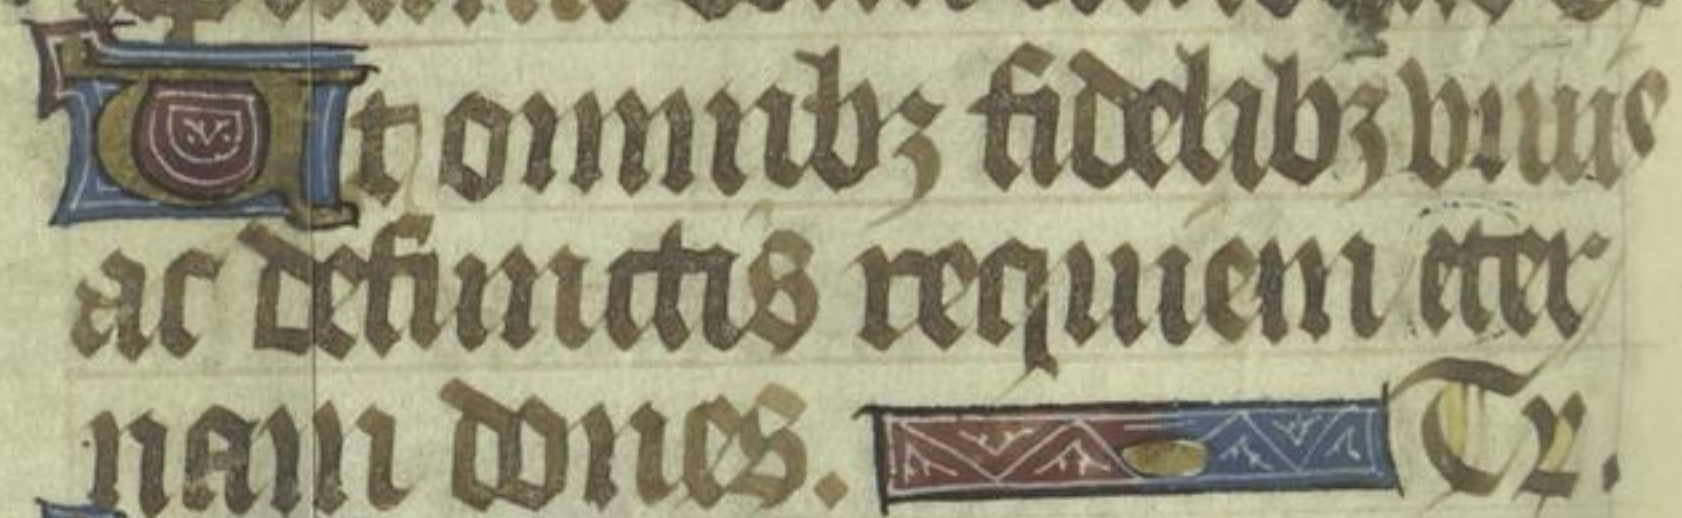 Ut omnibꝫ fidelibꝫ viuis
ac defunctis requiem eter
nam dones. Te r.